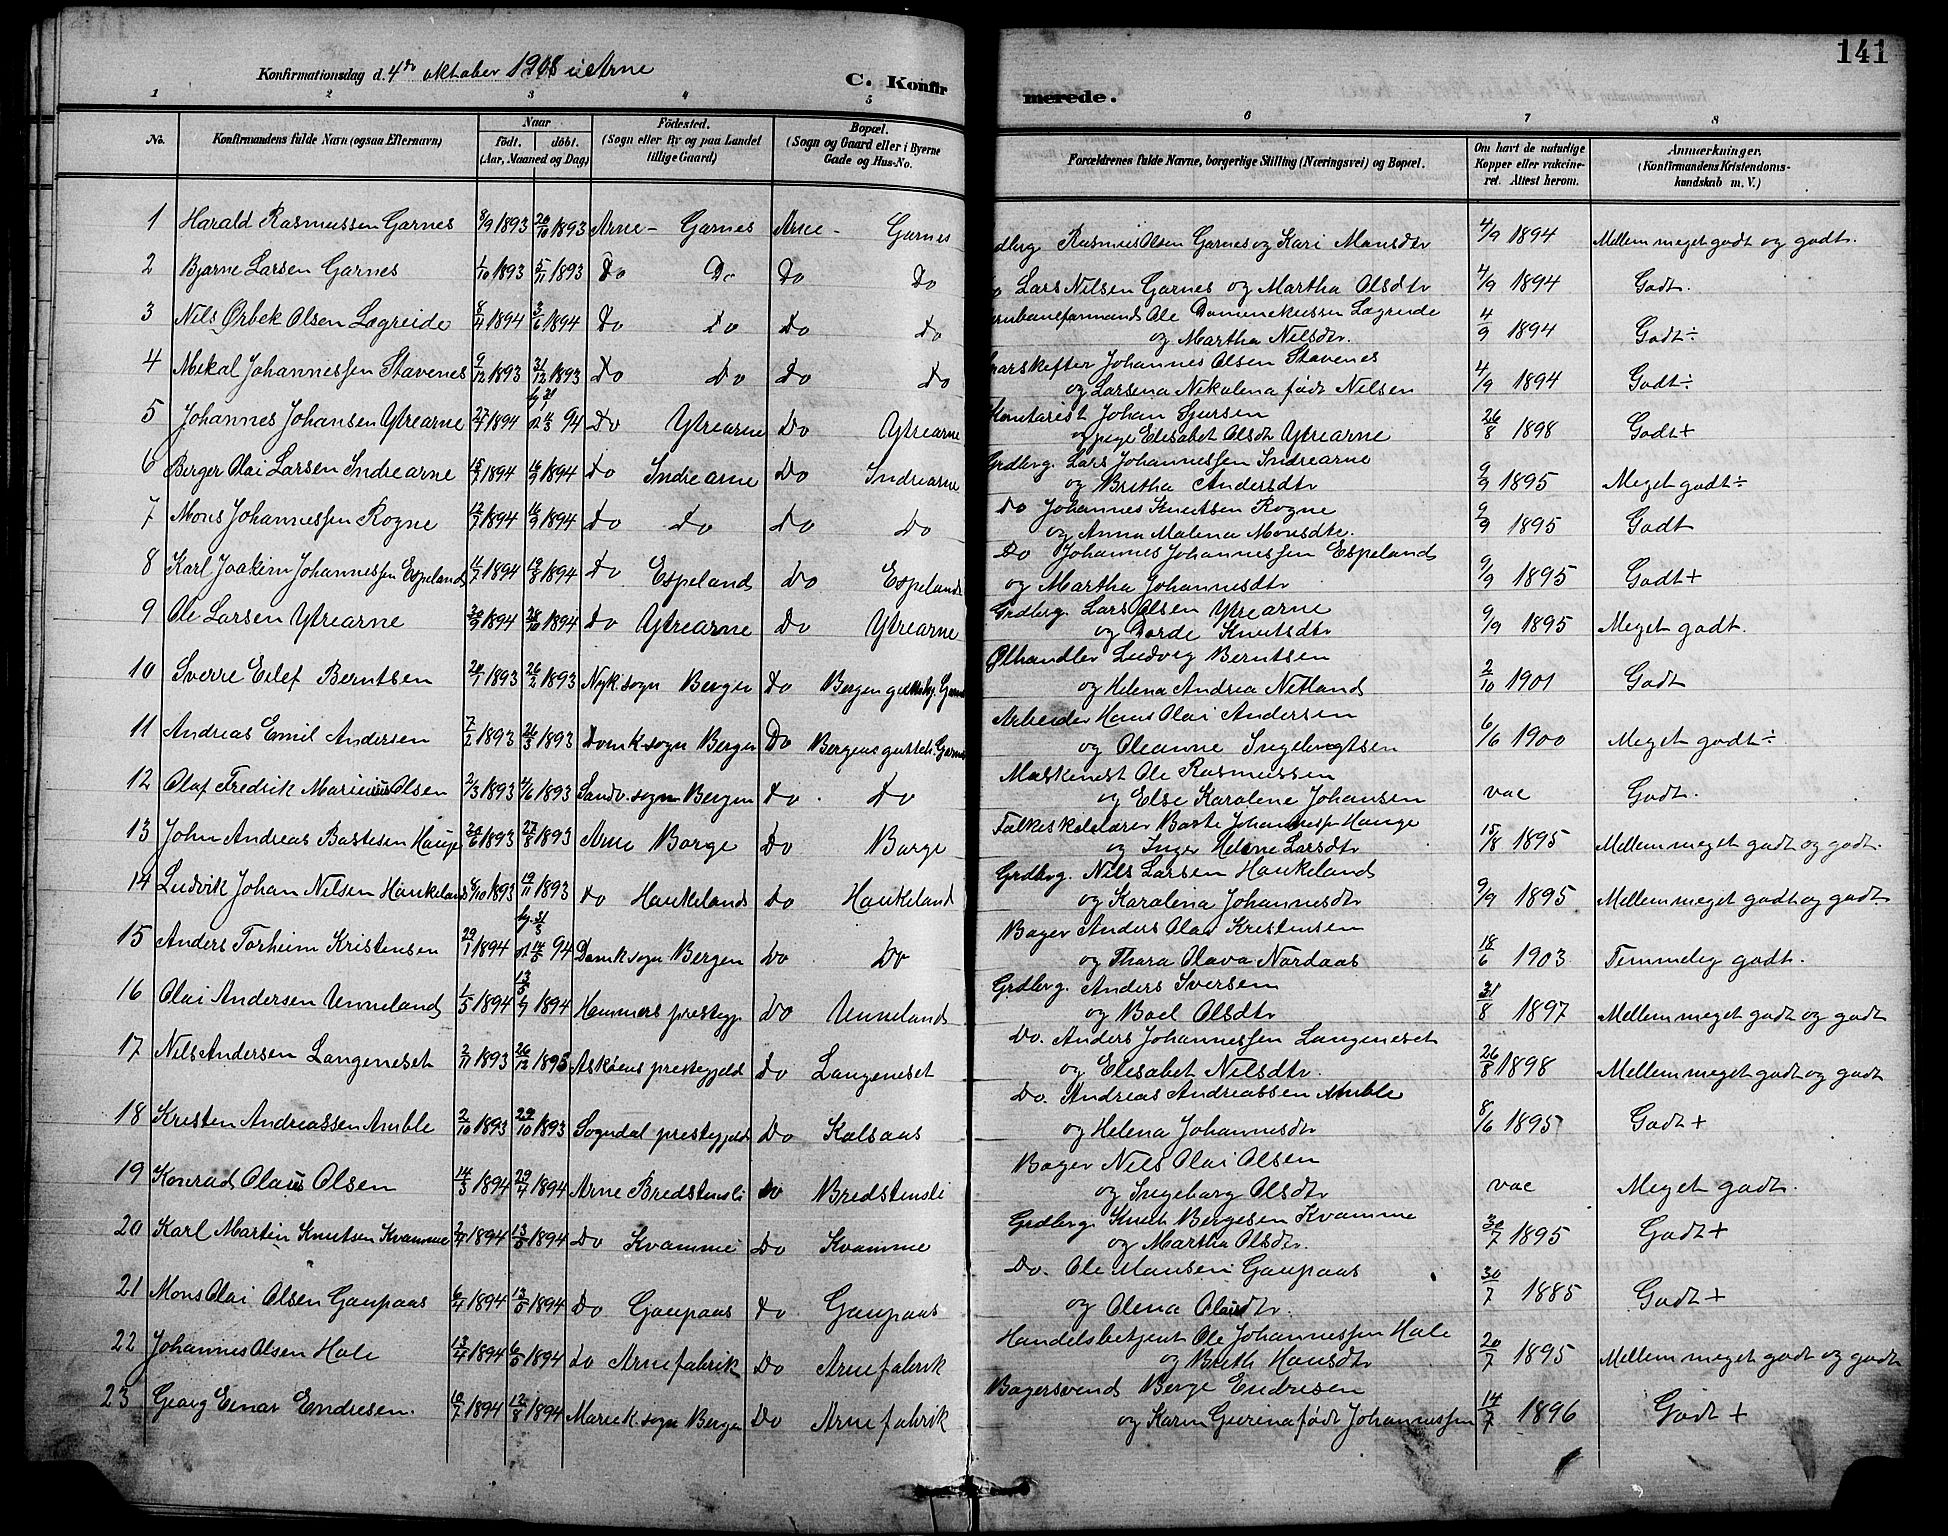 141
Konfirmationsdag d. 4de oktober 1908 i Arne
C. Konfirmerede.
1 2 3 4 5 6 7 8
No. Konfirmandens fulde Navn (ogsaa Efternavn) Naar født. døbt. (Aar, Maaned og Dag) Fødested. (Sogn eller By og paa Landet tillige Gaard) Bopæl. (Sogn og Gaard eller i Byerne Gade og Hus-No. Forældrenes fulde Navne, borgerlige Stilling (Næringsvei) og Bopæl. Om havt de naturlige Kopper eller vakcineret. Attest herom. Anmærkninger. (Konfirmandens Kristendomskundskab m. V.)
1 Harald Rasmussen Garnes 8/9 1893 20/10 1893 Arne - Garnes Arne - Garnes Rasmus Olsen Garnes og Kari Monsdtr 4/9 1894 Mellem meget godt og godt.
2 Bjarne Larsen Garnes 1/10 1893 5/11 1893 Do Do Do Do Lars Nilsen Garnes og Martha Olsdtr 4/9 1894 Godt.
3 Nils Ørbek Olsen Lægreide 8/4 1894 3/6 1894 Do Do Do Do Ole Dominekussen Lægreide
og Martha Nilsdtr. 4/9 1894 Godt ÷
4 Mikal Johannessen Stavenes 9/12 1893 31/12 1893 Do Do Do Do Johannes Olsen Stavenes
og Larsena Nikolena født Nilsen 4/9 1894 Godt ÷
5 Johannes Johansen Ytrearne 1894 94 Do Ytrearne Do Ytrearne Kontorist Johan Sjursen
og pige Elisabet Olsdtr Ytrearne 26/8 1898 Godt +
6 Berger Olai Larsen Indrearne 15/7 1894 16/9 1894 Do Indrearne Do Indrearne Grdbrg. Lars Johannessen Indrearne
og Britha Andersdtr 9/9 1895 Meget godt ÷
7 Mons Johannessen Rogne 12/7 1894 16/9 1894 Do Do Do Do Do Johannes Knutsen Rogne
og Anna Malena Monsdtr. 9/9 1895 Godt
8 Karl Joakim Johannessen Espeland 1894 19/8 1894 Do Espeland Do Espeland Do Johannes Johannessen Espeland
og Martha Johannesdtr 9/9 1895 Godt +
9 Ole Larsen Ytrearne 1894 28/10 1894 Do Ytrearne Do Ytrearne Grdbrg. Lars Olsen Ytrearne
og Dorde Knutsdtr 9/9 1895 Meget godt.
10 Sverre Eilef Berntsen 1893 26/2 1893 Nyk. sogn Bergen Do Ølhandler Ludvig Berntsen
og Helena Andrea Netland 2/10 1901 Godt
11 Andreas Emil Andersen 7/2 1893 26/3 1893 Domk. sogn Bergen Do Arbeider Hans Olai Andersen
og Oleanne Ingebrigtsen 6/6 1900 Meget godt ÷
12 Olaf Fredrik Marius Olsen 2/3 1893 4/6 1893 Sandv. sogn Bergen Do Do Maskinist Ole Rasmussen
og Else Karolene Johansen vac Godt.
13 John Andreas Bastesen Hauge 1893 27/8 1893 Arne Borge Do Borge Folkeskolelærer Baste Johannessen Hauge
og Inger Heline Larsdtr 15/8 1895 Mellem meget godt og godt.
14 Ludvik Johan Nilsen Haukeland 1893 19/11 1893 Do Haukeland Do Haukeland Grdbrg. Nils Larsen Haukeland
og Karolina Johannesdtr 9/9 1895 Mellem meget godt og godt
15 Anders Torheim Kristensen 29/1 1894 94 Domk sogn Bergen Do Do Bager Anders Olai Kristensen
og Thora Olava Nordaas 18/6 1903 Temmelig godt.
16 Olai Andersen Unneland 1/5 1894 1894 Hammers prestegj Do Unneland Grdbrg. Anders Iversen
og Boel Olsdtr 31/8 1897 Mellem meget godt og godt
17 Nils Andersen Langeneset 2/11 1893 26/12 1893 Askøens prestegjeld Do Langeneset Do. Anders Johannessen Langeneset
og Elisabet Nilsdtr. 26/8 1898 Mellem meget godt og godt
18 Kristen Andreassen Amble 2/10 1893 29/10 1893 Sogndal prestegjeld Do Kalsaas Do. Andreas Andreassen Amble
og Helena Johannesdtr 8/6 1895 Godt +
19 Konrad Olaus Olsen 14/3 1894 29/4 1894 Arne Bredstensli Do Bredstensli Bager Nils Olai Olsen
og Ingeborg Olsdtr vac Meget godt.
20 Karl Martin Knutsen Kvamme 2/4 1894 13/5 1894 Do Kvamme Do Kvamme Grdbrg. Knut Bergesen Kvamme
og Martha Olsdtr. 30/7 1895 Godt +
21 Mons Olai Olsen Gaupaas 6/4 1894 13/5 1894 Do Gaupaas Do Gaupaas Do. Ole Monsen Gaupaas
og Olena Olausdtr. 30/7 1885 Godt +
22 Johannes Olsen Hole 13/4 1894 6/5 1894 Do Arne fabrik Do Arne fabrik Handelsbetjent Ole Johannessen Hole
og Brith Hansdtr 20/7 1895 Mellem meget godt og godt
23 Georg Einar Endresen. 10/7 1894 12/8 1894 Mariek. sogn Bergen Do Arne fabrik Bagersvend Berge Endresen
og Karen Gurina født Johannessen 14/7 1896 Godt +